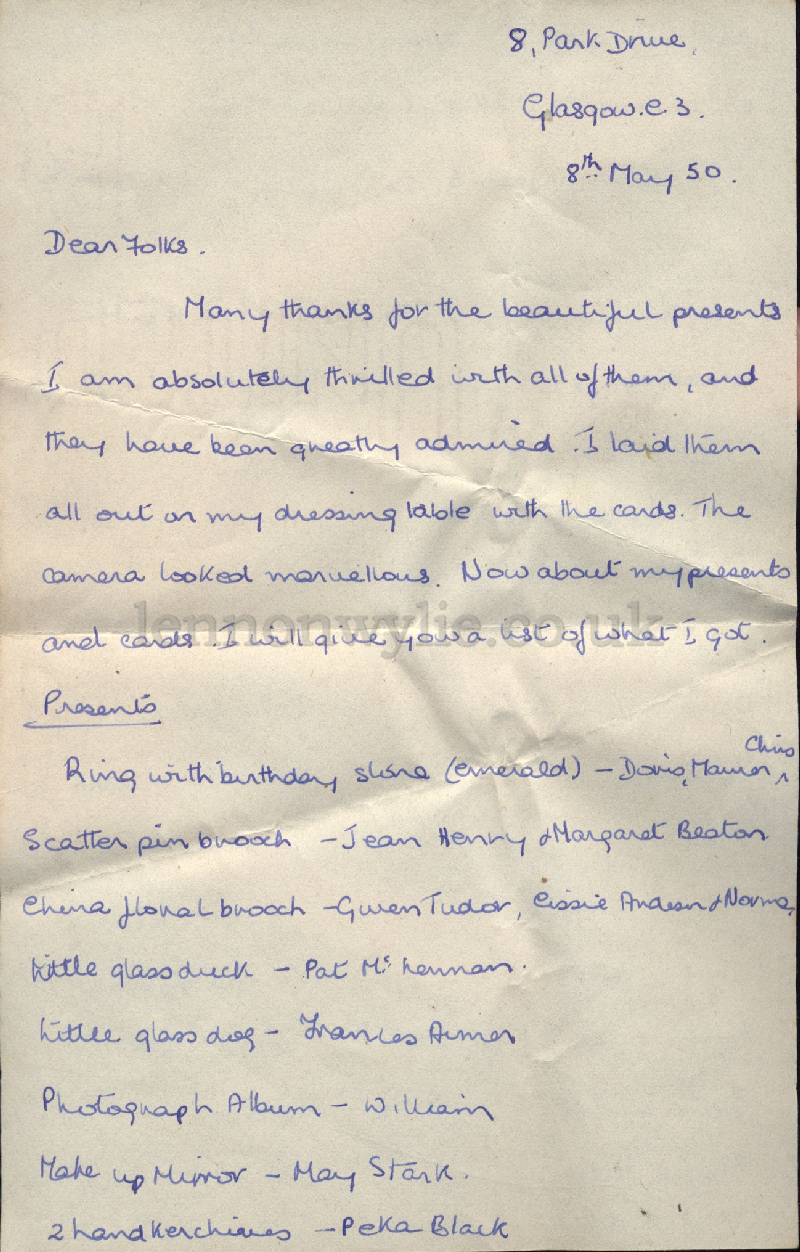 8, Park Drive,
Glasgow. C. 3.
8th May 50.
Dear Folks.
Many thanks for the beautiful presents
I am absolutely thrilled with all of them, and
they have been greatly admired. I laid them
all out on my dressing table with the cards. The
camera looked marvellous. Now about my presents
and cards. I will give you a list of what I got.
lennonwylie.co.uk
Presents
Ring with birthday stone (emerald) - Doris, Chris
Scatter pin brooch - Jean Henry & Margaret Beaton
China floral brooch - Gwen Tudor, Cissie & Norma,
Little glass duck - Pat Mc Lennan.
Little glass dog - Frances
Photograph Album - William
Make up Mirror - May Stark.
2 handkerchieves - Peka Black